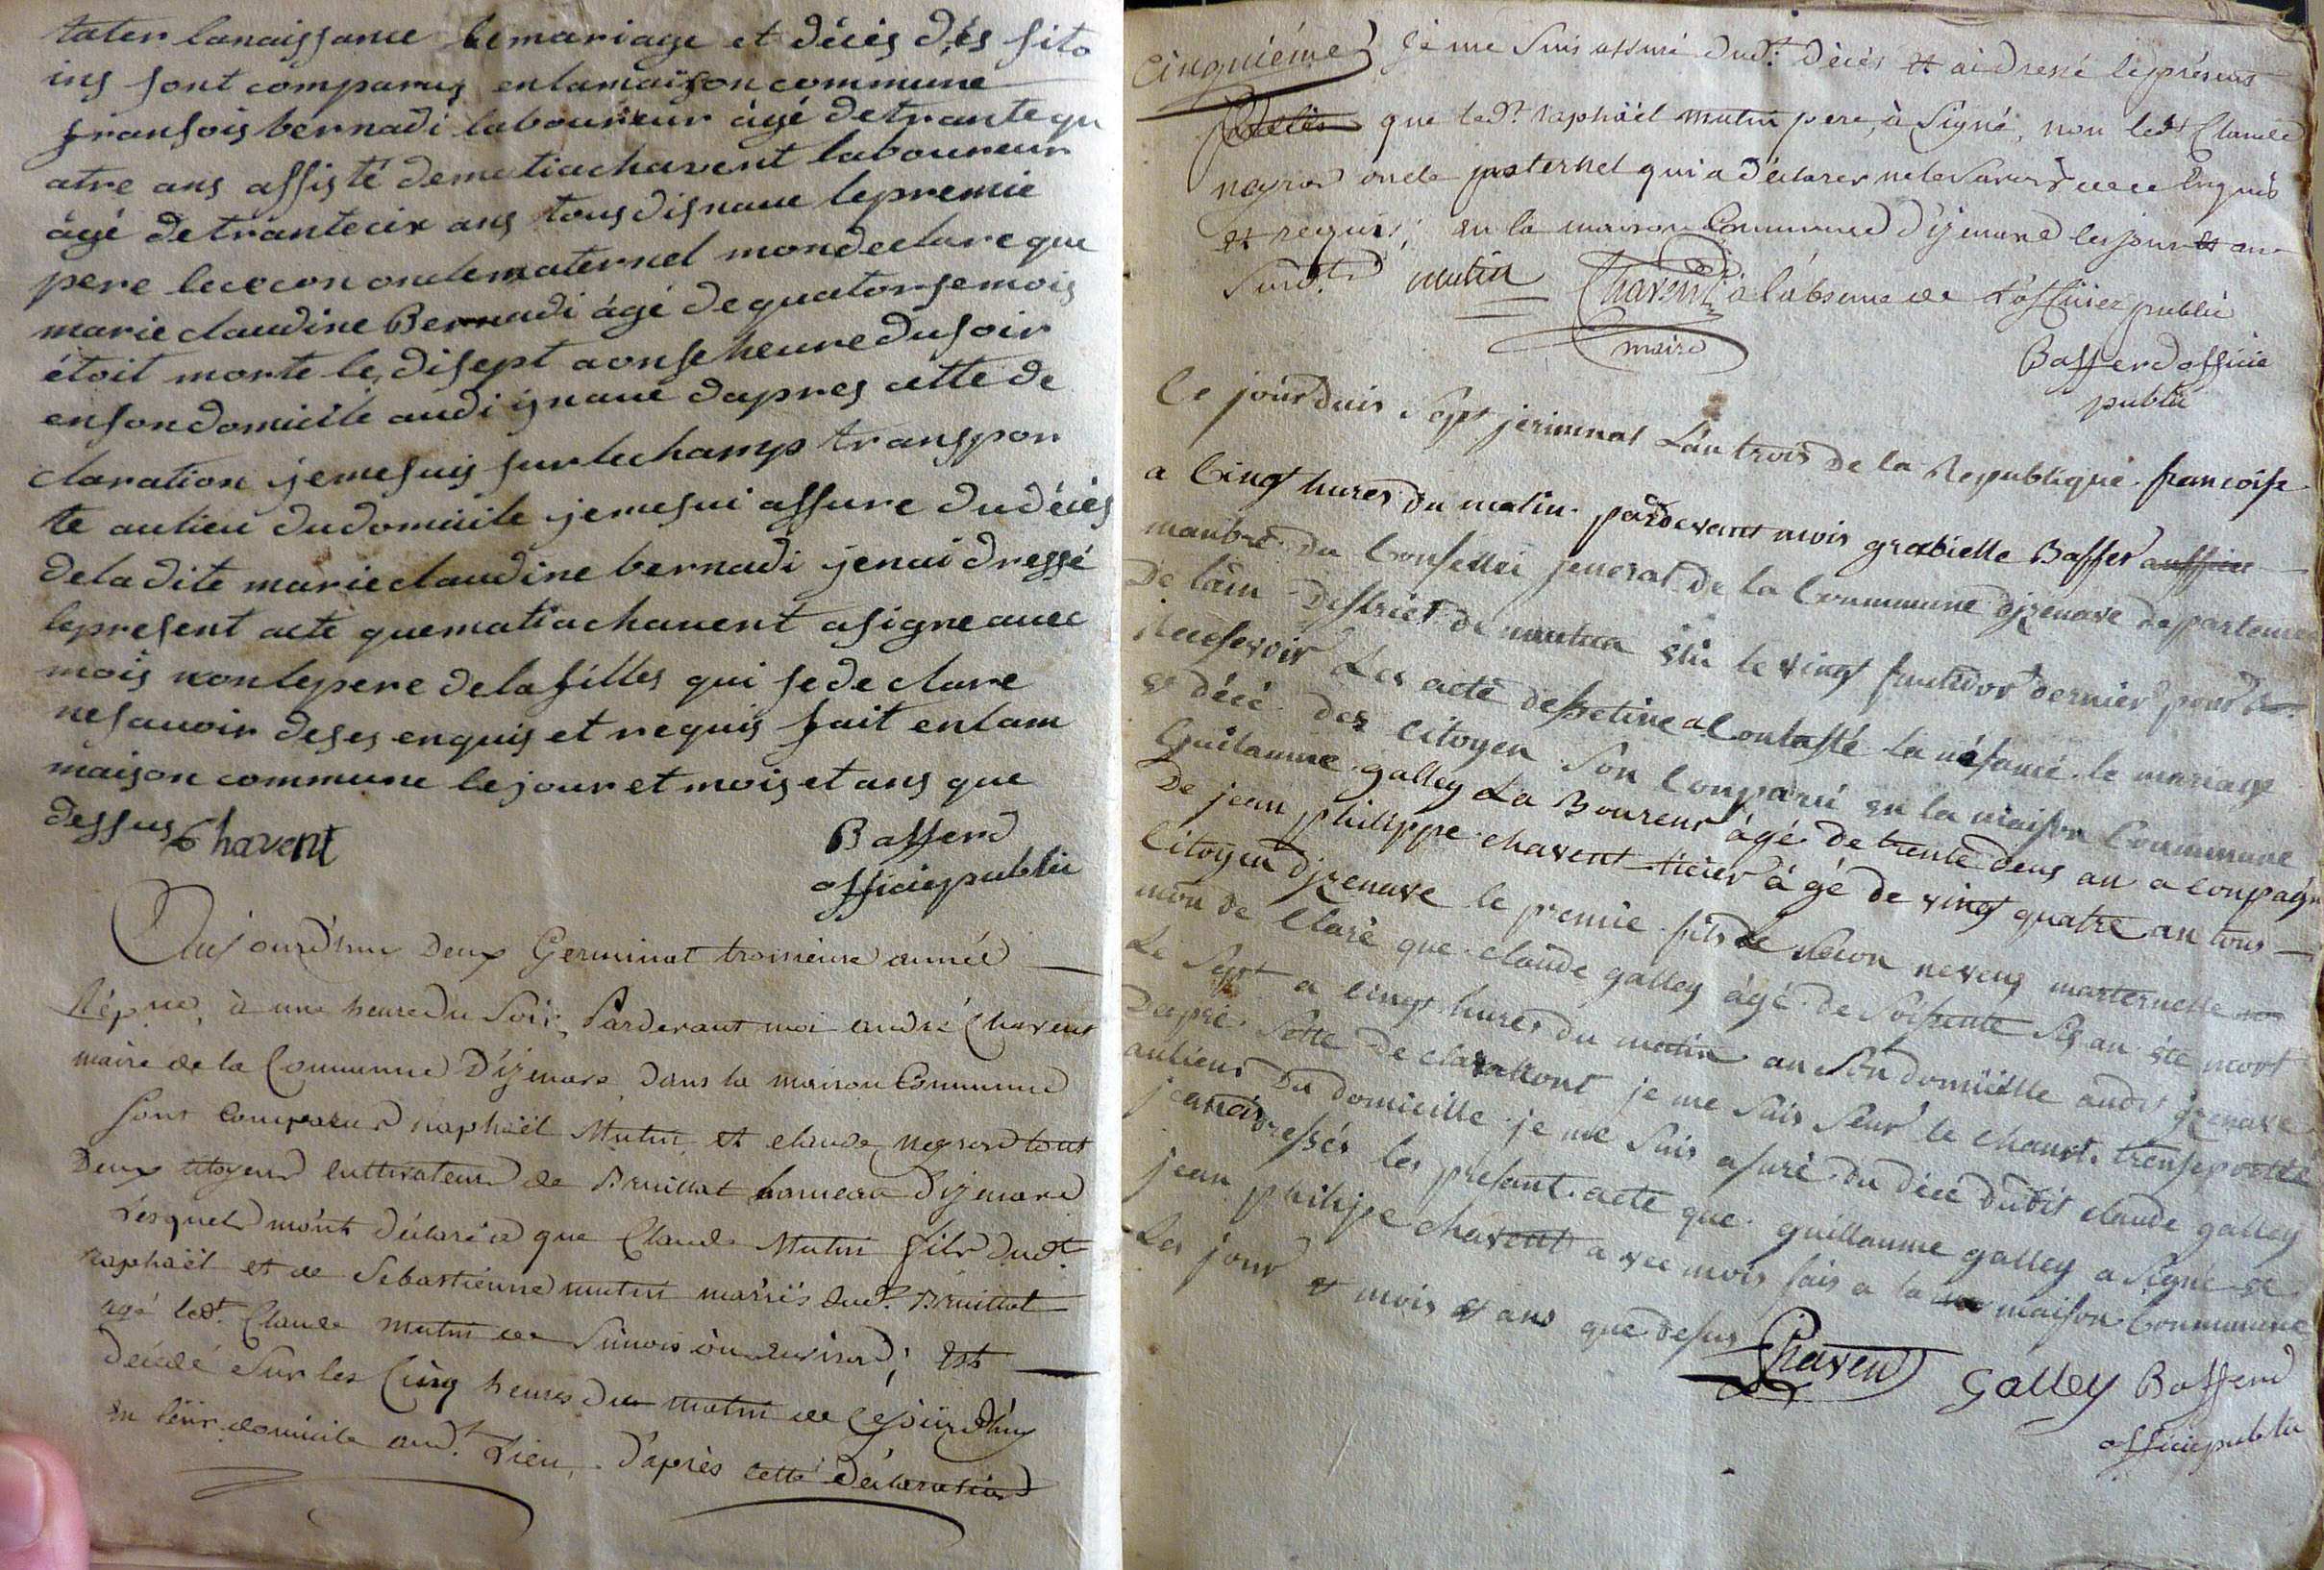 tater lanaissance lemariage et décès dés sito
ins sont comparus enlamaison commune
fransois bernadi laboureur âgé detrantequ
atre ans assisté dematiachavent laboureur
âgé detrantecix ans tousdisnave lepremie
pere lececon onclematernel mondeclare que
marie claudine Bernadi âgé dequatorsemois
étoit morte le disept aonseheuredusoir
ensondomicile audi isnave dapres cette de
claration jemesuis surlechamps transpor
te aulieu dudomicile jemesui assure dudécès
deladite marieclaudine bernadi jenai dressé
lepresent acte quematiachavent asigneavec
mois nonlepere delafilles qui sedeclare
nesavoir deses enquis et requis fait enlam
maison commune lejour et mois et ans que
dessus Chavent
Bafferd
officiepublic
Aujourd'huy Deux Germinal troisieme année
Répue, à une heure du Soir, Pardevant moi andré Chavent
maire de la Commune D'izenave dans la maison Commune
sont Comparus raphaël Mutin et claude neyrod tout
Deux citoyens cultivateurs de Bruillat hameau d'izenave
Lesquels m'ont déclaré que Claude Mutin fils dud.t
raphaël et de Sebastienne mutin mariés dud.t Bruillat
agé led.t Claude mutin de Sîmois ou environ; est
décédé Sur les Cinq heures du matin de Cejourd'huy
en leur domicile aud.t Lieu, d'après cette déclaration
Cinquiéme
je me Suis assuré dud.t décès et ai dressé le présent
que led.t raphaël mutin pere, à Signé, non led.t Claude
neyrod oncle paternel qui a déclarer ne le Savoir de ce Enquis
et requis; en la maison Commune d'izenave les jour et an
Susd.ts mutin Chavent à l'absence de L'officier public
maire
Bafferd officie
public
Ce jourduis Sept jeriminal L'an trois de la Republique francoise
a Cinqt hures du matin pardevant mois grabielle Baffer
manbre du Consellei jeneral de la Coummune djzenave departemen
De lâin District de nantua élu le vingt fructidor dernier pour
Recesevoir Les acte destine a Contasté la nésance le mariage
et décé des Citoyen Son Comparü en la maison Coummune
Guilaume galley La Boureur âgé de trente deus an a conpagn
De jean philippe chavent ticier âgé de vingt quatre an tous
Citoyen djzenave le premie fils le secon neveus marternelle
mon de Claré que claude galley âgé de Soisente Sis an éte mort
Le Sept a cinqt hures du matin an Son domicille audit jzenave
Daprè Sette de claration je me Suis Seur le chant trensportté
aulieus Du domicille je me Suis asuré du déce dudit claude galley
jeanais dressés les presant acte que guillaume galley a Signé et
jean philipe chavent a vec mois fais a la maison Coummune
Les jour et mois et ans que desus
Chavend Galley Bafferd
officiepublic